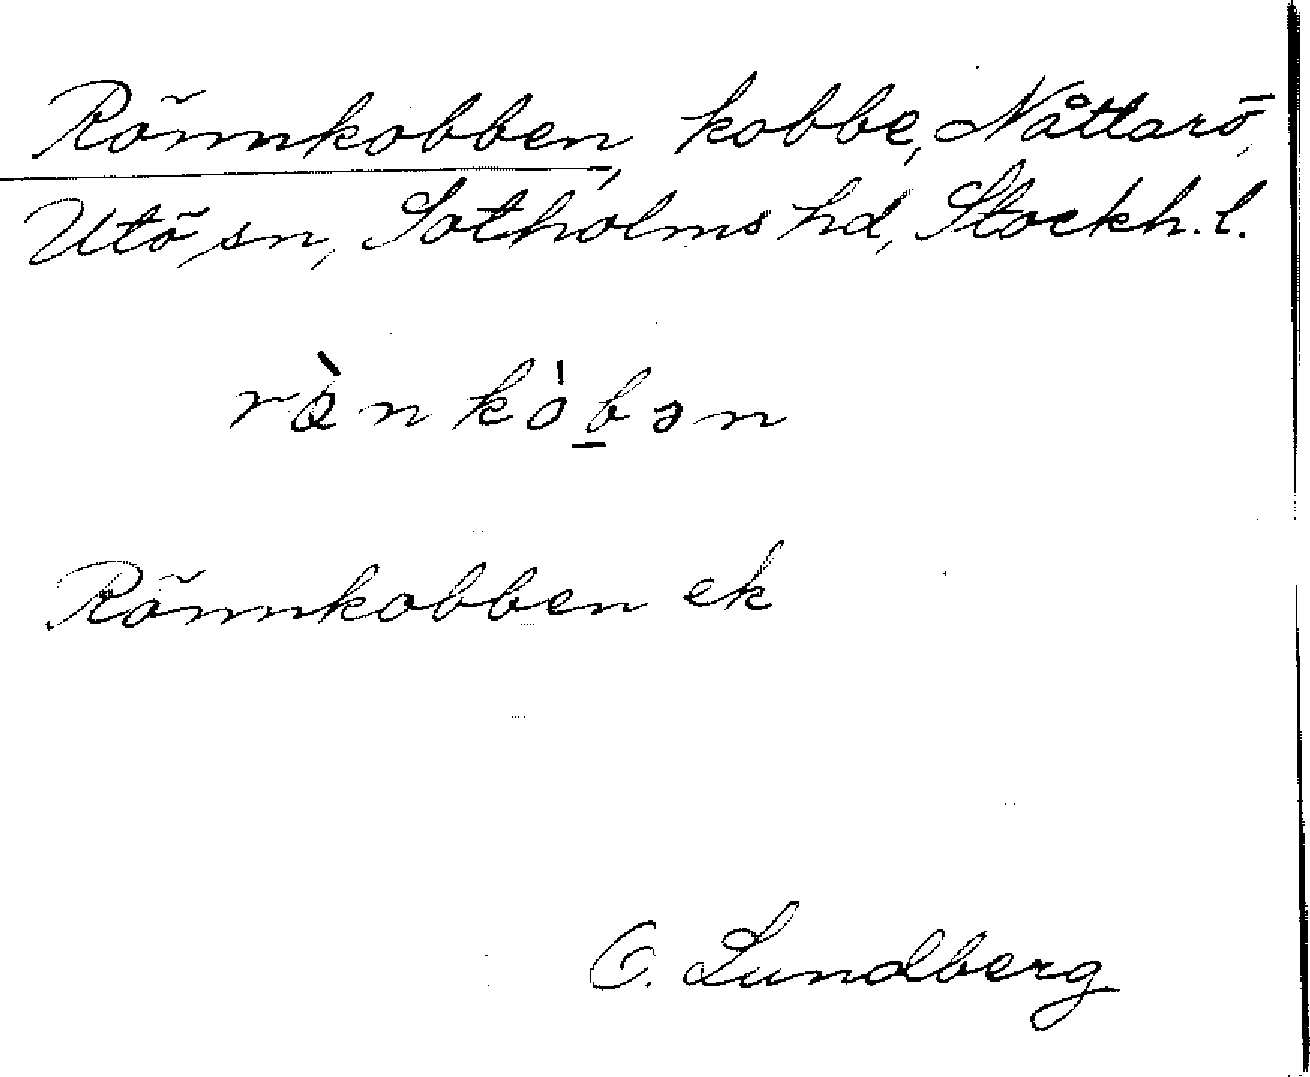 Rönnkobben, kobbe, Nåttarö,
Utö sn, Sotholms hd, Stockh. l.
rö̀nkȯ̀b̲ən
Rönnkobben ek
O. Lundberg